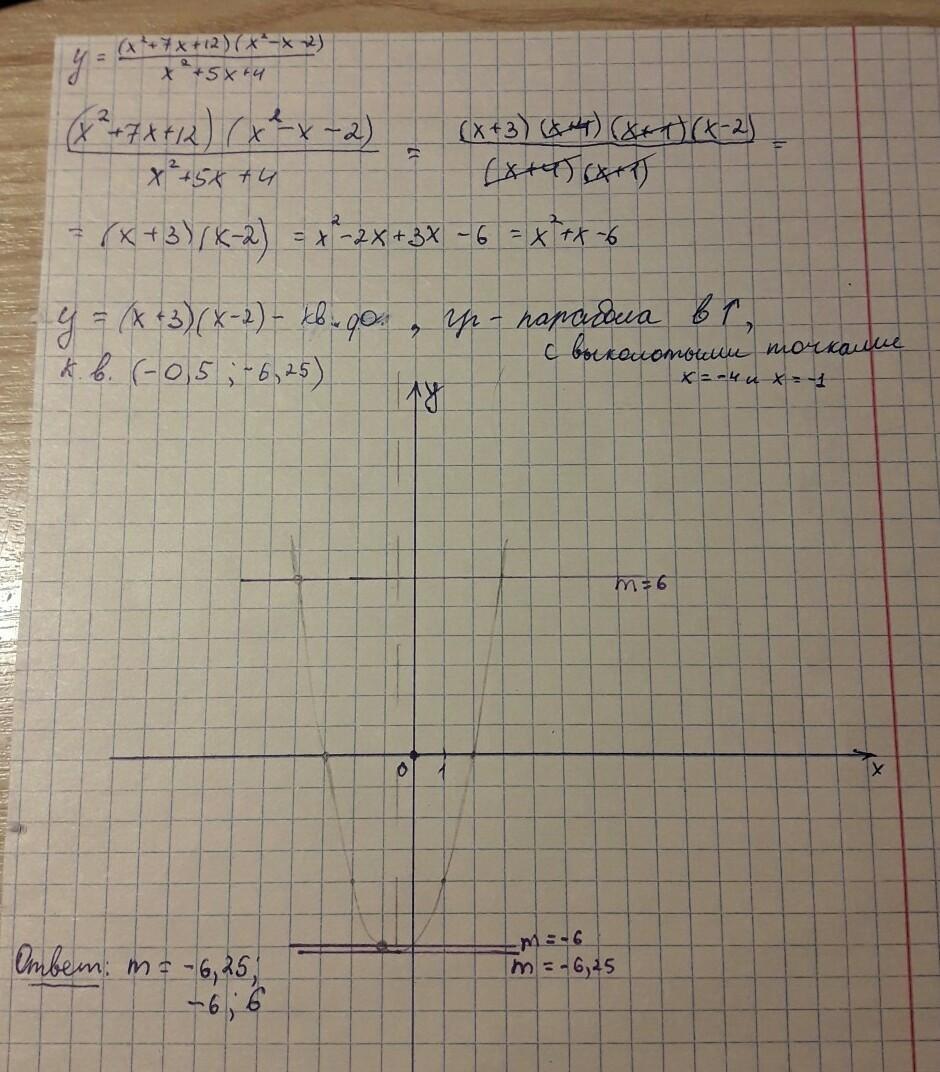 y = (x²+7x+12)(x²-x-2) / x²+5x+4
(x²+7x+12)(x²-x-2) / x²+5x+4 = (x+3)(x+4)(x+1)(x-2) / (x+4)(x+1) =
= (x+3)(x-2) = x²-2x+3x-6 = x²+x-6
y = (x+3)(x-2) - кв. ф., гр - парабола в↑,
с выколотыми точками
x=-4 и x=-1
к. в. (-0,5; -6,25)
y
m=6
0 1 x
m=-6
m=-6,25
Ответ: m = -6,25;
-6; 6